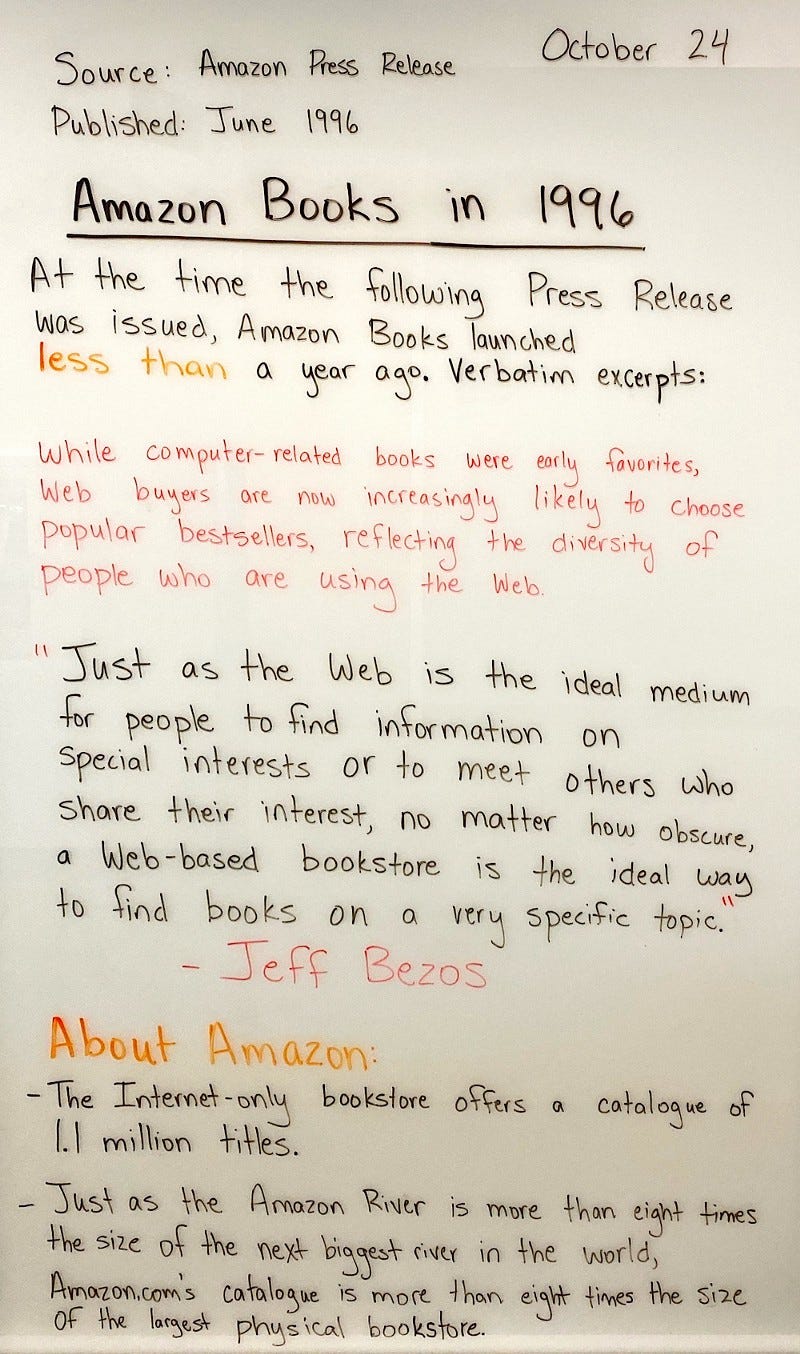 October 24
Source: Amazon Press Release
Published: June 1996
Amazon Books in 1996
At the time the following Press Release
was issued, Amazon Books launched
less than a year ago. Verbatim excerpts:
While computer-related books were early favorites,
Web buyers are now increasingly likely to choose
popular bestsellers, reflecting the diversity of
people who are using the Web.
"Just as the Web is the ideal medium
for people to find information on
special interests or to meet others who
share their interest, no matter how obscure,
a Web-based bookstore is the ideal way
to find books on a very specific topic."
- Jeff Bezos
About Amazon:
- The Internet-only bookstore offers a catalogue of
1.1 million titles.
- Just as the Amazon River is more than eight times
the size of the next biggest river in the world,
Amazon.com's catalogue is more than eight times the size
of the largest physical bookstore.